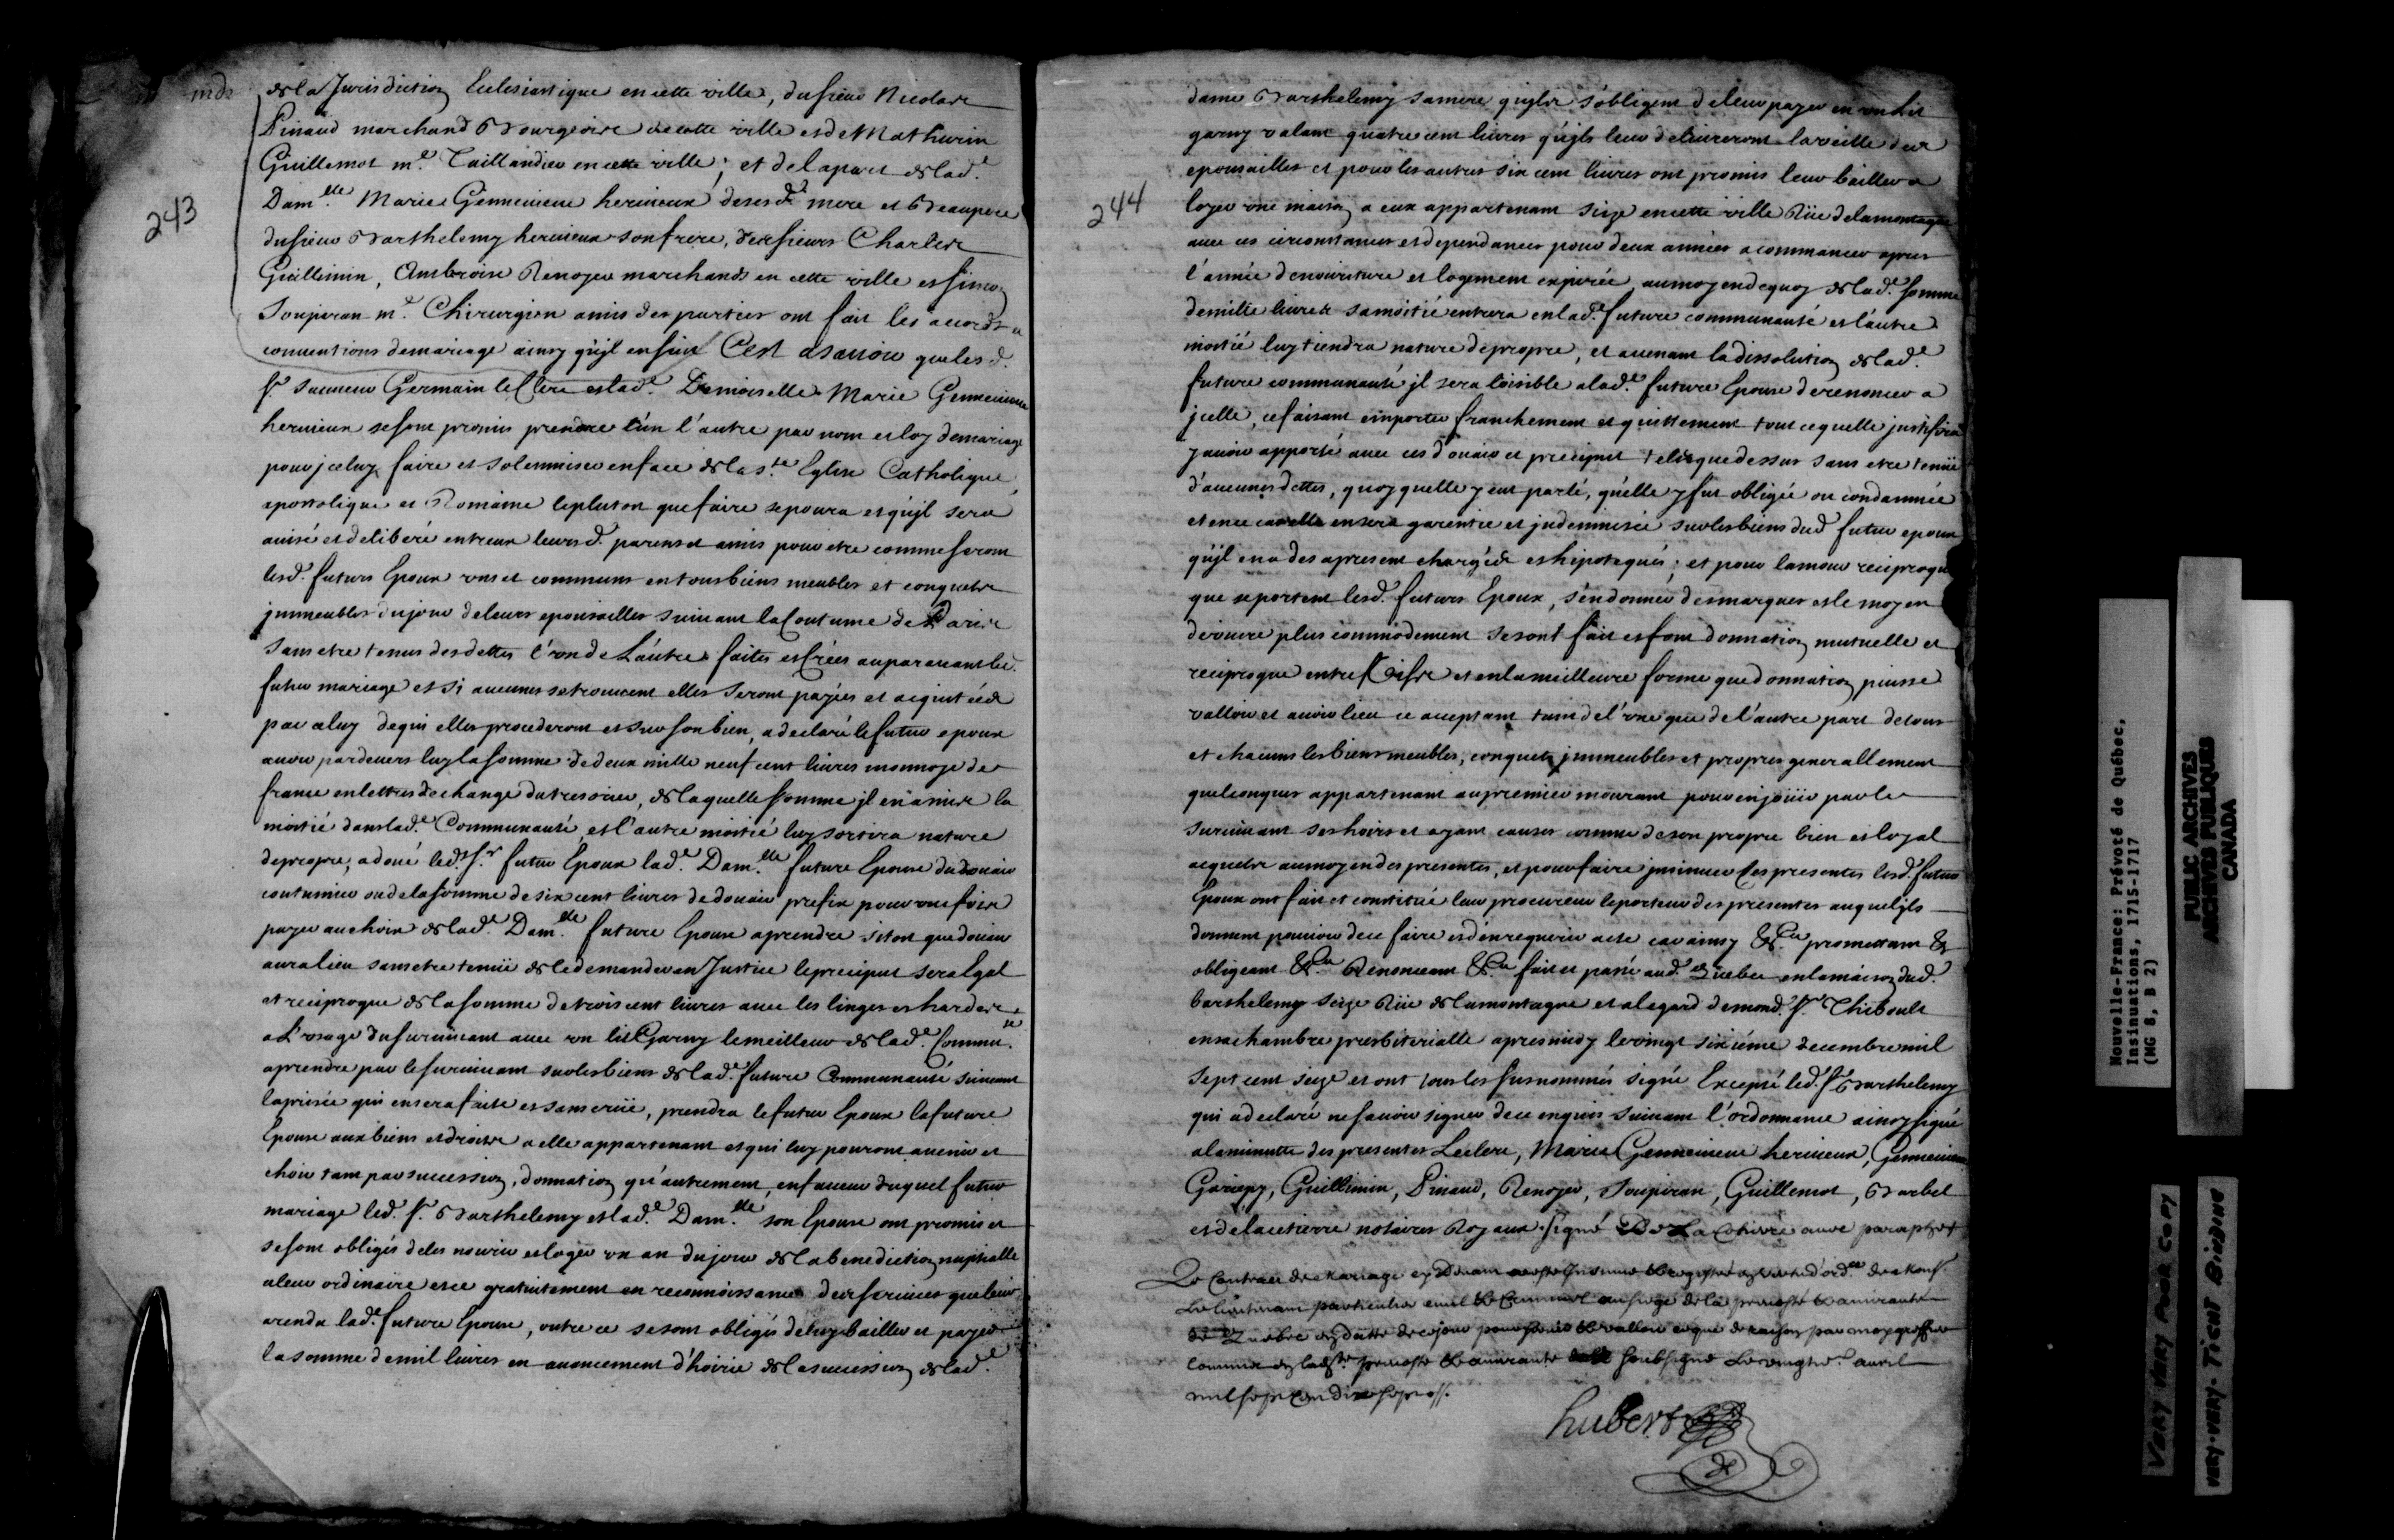 243
de la Jurisdiction Eclesiastique en cette ville, du sieur Nicolas
Pinaud marchand Bourgeois de cette ville et de Mathurin
Guillemot me. Taillandier en cette ville; et de la part de lad.e
Dam.lle Marie Gennevieve hervieux de sesd. mere et Beaupere
du sieur Barthelemy hervieux son frere, des sieurs Charles
Guillimin, Ambroise Renoyer marchands en cette ville et simon
Soupiran me. Chirurgien amis des parties ont fait les acords et
conventions de mariage ainsy qu'jl ensuit C'est asavoir que lesd.
sr. sauveur Germain leClerc et lad.e Demoiselle Marie Gennevieve
hervieux se sont promis prendre l'ún l'autre par nom et loy de mariage
pour jceluy faire et solemniser en face de la s.te Eglise Catholique,
apostolique et Romaine le plutost que faire se poura et qu'jl sera
avisé et deliberé entreux leursd. parens et amis pour etre comme seront
lesd. futurs Epoux uns et communs en tous biens meubles et conquets
jmmeubles du jour de leurs epousailles suivant la Coutume de Paris
sans etre tenus des dettes l'un de L'áutre faites et Crées auparavant led.
futur mariage et si aucunes se trouvent elles seront payées et aquitées
par celuy de qui elles procederont et sur son bien, a declaré le futur epoux
avoir pardevers luy la somme de deux mille neuf cent livres monnoye de
france en lettres de change du tresorier, de laquelle somme jl en a mis la
moitié dans lad.e Communauté et l'autre moitié luy sortira nature
de propre; a doué led. sr. futur Epoux lad.e Dam.lle future Epouse du douaire
coutumier ou de la somme de six cent livres de douaire prefix pour une fois
payer au choix de lad.e Dam.lle future Epouse a prendre sitost que douaire
aura lieu sans etre tenüe de le demander en Justice le preciput sera Egal
et reciproque de la somme de trois cent livres avec les linges et hardes
a L'usage du survivant avec un lit Garny le meilleur de lad.e Commu.té
a prendre par le survivant sur les biens de lad.e future Communauté suivant
la prisée qui en sera faite et sans crüe, prendra le futur Epoux la future
Epouse aux biens et droits a elle appartenant et qui luy pouront avenir et
choir tant par succession, donnation qu'autrement, en faveur duquel futur
mariage led. sr. Barthelemy et lad.e Dam.lle son Epouse ont promis et
se sont obligés de les nourir et loger un an du jour de la benediction nuptialle
a leur ordinaire et ce gratuitement en reconnoissance des services que leur
a rendu lad.e future Epouse, outre ce se sont obligés de luy bailler et payer
la somme de mil livres en avancement d'hoirie de la succession de lad.e
244
dame Barthelemy sa mere qu'jls s'obligent de leur payer en un lit
garny valant quatre cent livres qu'jls leur delivreront la veille des
epousailles et pour les autres six cent livres ont promis leur bailler a
loyer une maison a eux appartenant size en cette ville Rüe de la montagne
avec ces circonstances et dependances pour deux années a commancer apres
l'année de nouriture et logement expirée, au moyen de quoy de lad.e somme
de mille livres sa moitié entrera en lad.e future communauté et l'autre
moitié luy tiendra nature de propre, et avenant la dissolution de lad.e
future communauté jl sera loisible a lad.e future Epouse de renoncer a
jcelle, ce faisant emporter franchement et quittement tout ce quelle justifira
y avoir apporté avec ces douaire et preciput tels que dessus sans etre tenüe
d'aucunes dettes, quoy quelle y eut parlé, qu'elle y fut obligée ou condamnée
et ence cas elle en sera garentie et jndemnisée sur les biens dud. futur epoux
qu'jl en a des apresent chargés et hipotequés; et pour lamour reciproque
que se portent lesd. futurs Epoux, s'en donner des marques et le moyen
de vivre plus commodement se sont fait et font donnation mutuelle et
reciproque entre vifs et en la meilleure forme que donnation puisse
valloir et avoir lieu ce aceptant tant de l'une que de l'autre part de tous
et chacuns les biens meubles, conquets jmmeubles et propres generallement
quelconques appartenant au premier mourant pour en joüir par le
survivant ses hoirs et ayant causes comme de son propre bien et loyal
aquets au moyen des presentes, et pour faire jnsinuer ces presentes lesd. futurs
Epoux ont fait et constitué leur procureur le porteur des presentes auquel jls
donnent pouvoir de ce faire et d'en requerir acte car ainsy &c.a promettant &
obligeant &c.a Renonceant &c.a fait et passé aud. Quebec en la maison dud.
barthelemy seize Rüe de la montagne et a legard de mond. sr. Thiboult
en sa chambre presbiterialle apres midy le vingt sixiéme decembre mil
sept cent seize et ont tous les susnommés signé Excepté led. sr. Barthelemy
qui a declaré ne savoir signer de ce enquis suivant l'ordonnance ainsy signé
a la minutte des presentes Leclerc, Marie Gennevieve hervieux, Gennevieve
Gariepy, Guillimin, Pinaud, Renoyer, Soupiran, Guillemot, Barbel
et de la cetierre notaires Royaux. signé De La Cetierre avec paraphe
Le Contract de Mariage cy Devant a esté Insinué & registré en vertu d'ord.ce de Mons.
Le lieutenant particulier civil & Criminel au siege de la prevosté & amirauté
de Quebec en datte de ce jour pour servir & valloir ce que de raison par moy greffier
commis en lad. prevosté & amirauté soubsigné Le vingt avril
mil sept cent dix sept.
hubert
Nouvelle-France: Prévoté de Québec,
Insinuations, 1715-1717
(MG 8, B 2)
PUBLIC ARCHIVES
ARCHIVES PUBLIQUES
CANADA
VERY VERY POOR COPY
VERY-VERY-TIGHT BINDING